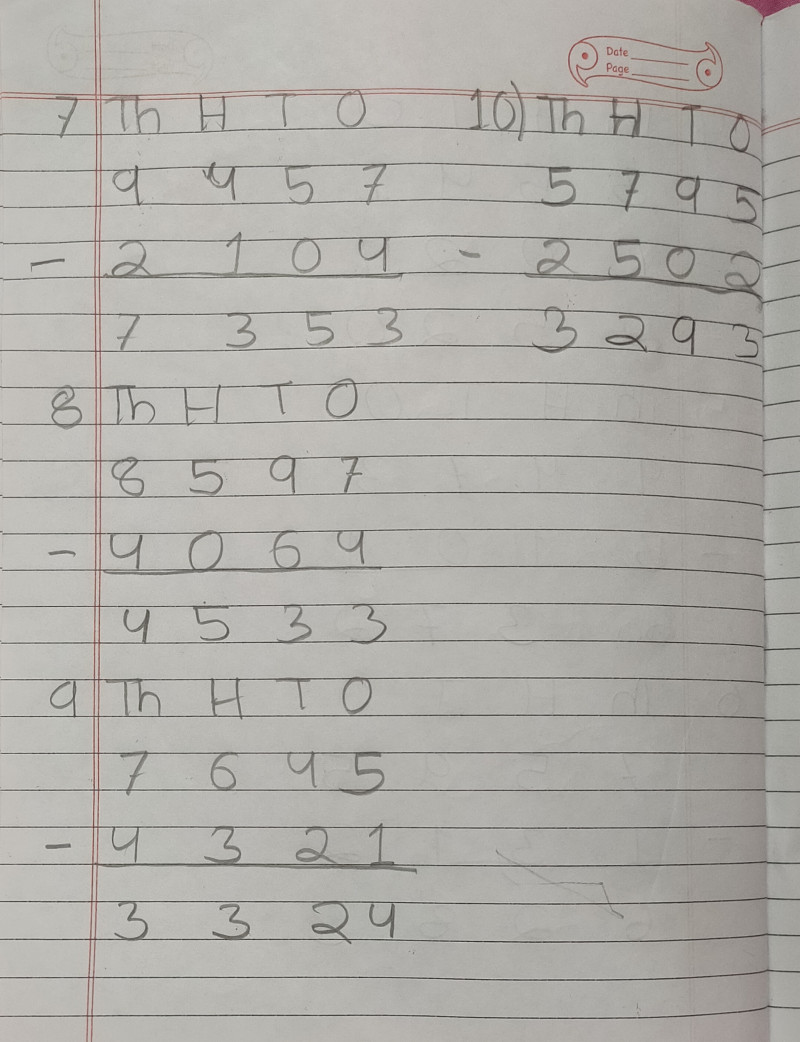 Date
Page
7 Th H T O
9 4 5 7
- 2 1 0 4
7 3 5 3
8 Th H T O
8 5 9 7
- 4 0 6 4
4 5 3 3
9 Th H T O
7 6 4 5
- 4 3 2 1
3 3 2 4
10) Th H T O
5 7 9 5
- 2 5 0 2
3 2 9 3